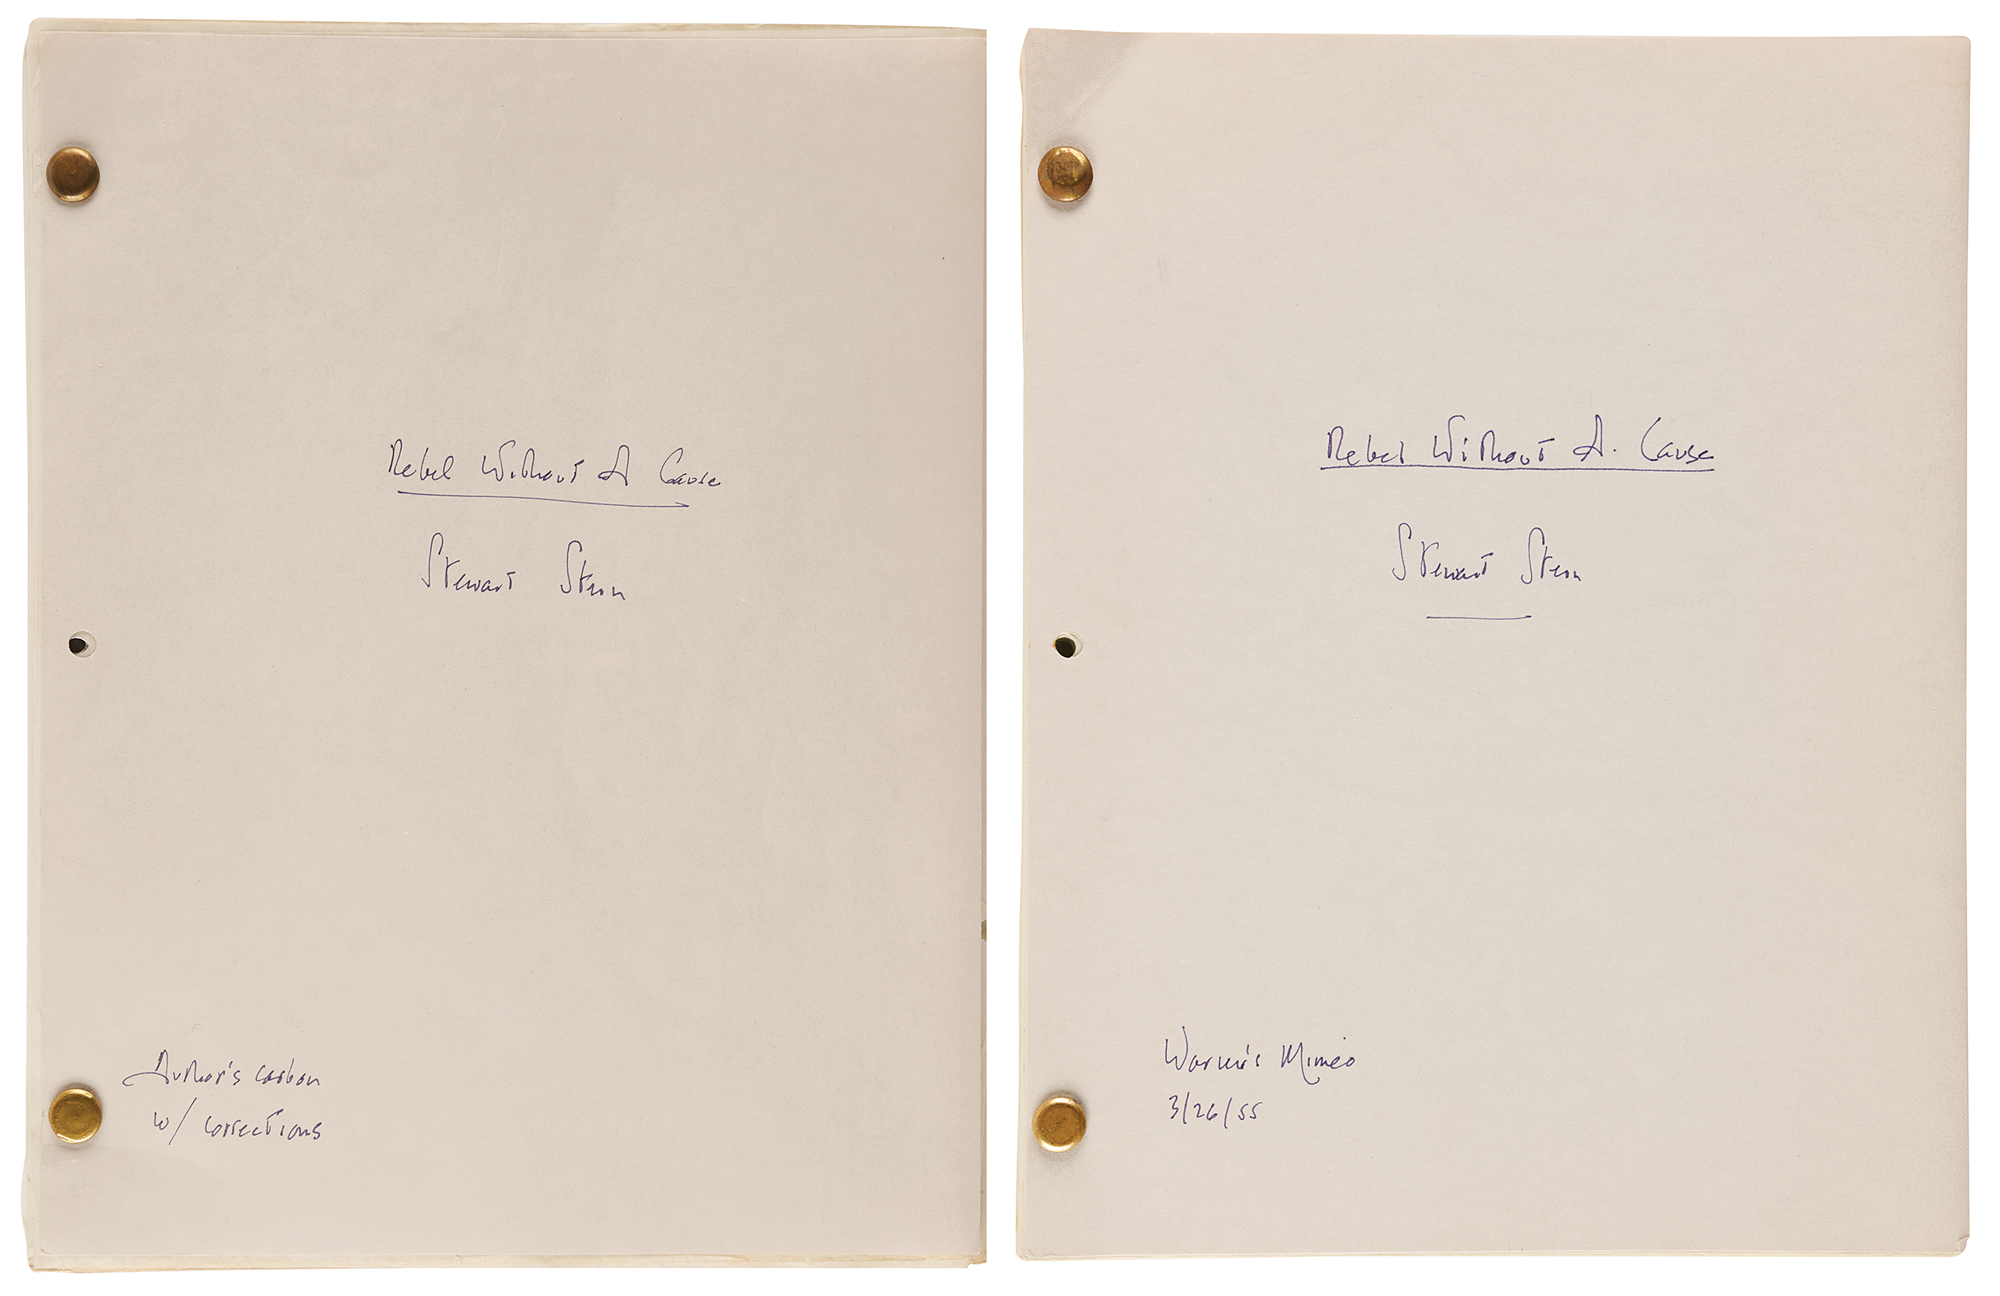 Rebel Without A Cause
Stewart Stern
Author's carbon
w/ corrections
Rebel Without A. Cause
Stewart Stern
Warner's Mimeo
3/26/55